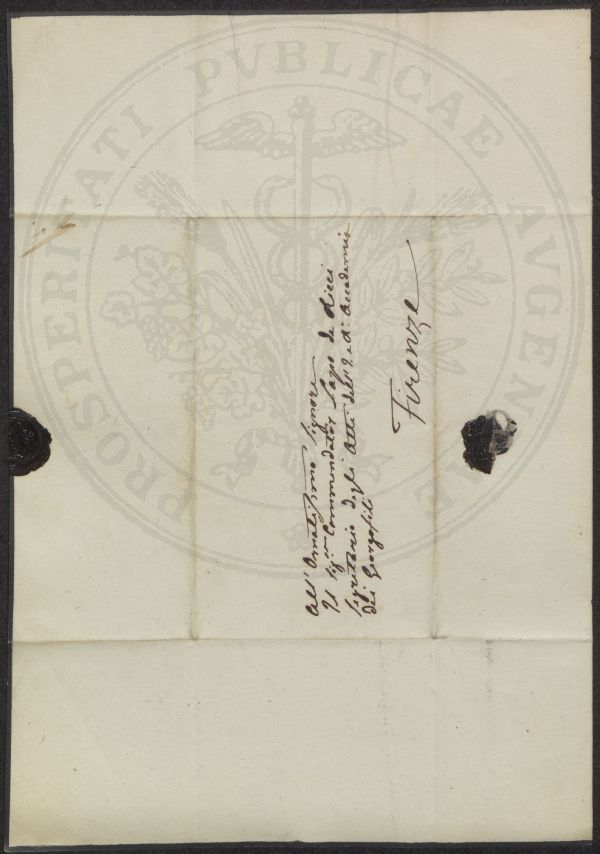 All' Ornatissimo Signore
Il Sig.r Commendator Lapo de Ricci
Segretario degli Atti dell' I. e R. Accademia
dei Georgofili
Firenze
PROSPERITATI PVBLICAE AVGENDAE